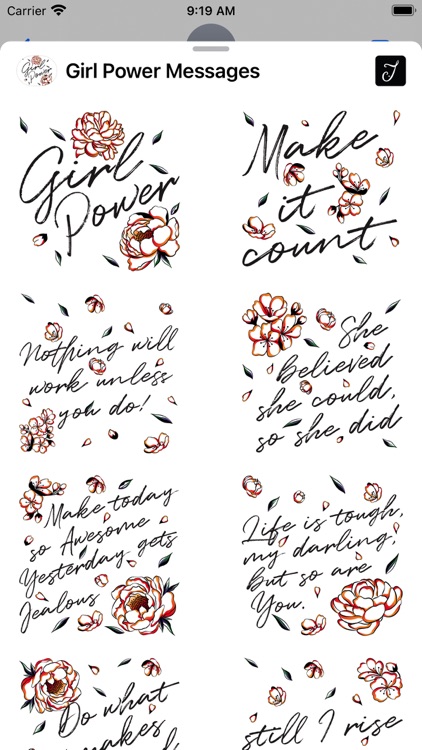 Carrier 9:19 AM
Girl Power Messages
Girl
Power
Make
it
count
Nothing will
work unless
you do!
She
Believed
she could,
so she did
Make today
so Awesome
Yesterday gets
Jealous
Life is tough,
my darling,
but so are
You.
Do what
makes
still I rise